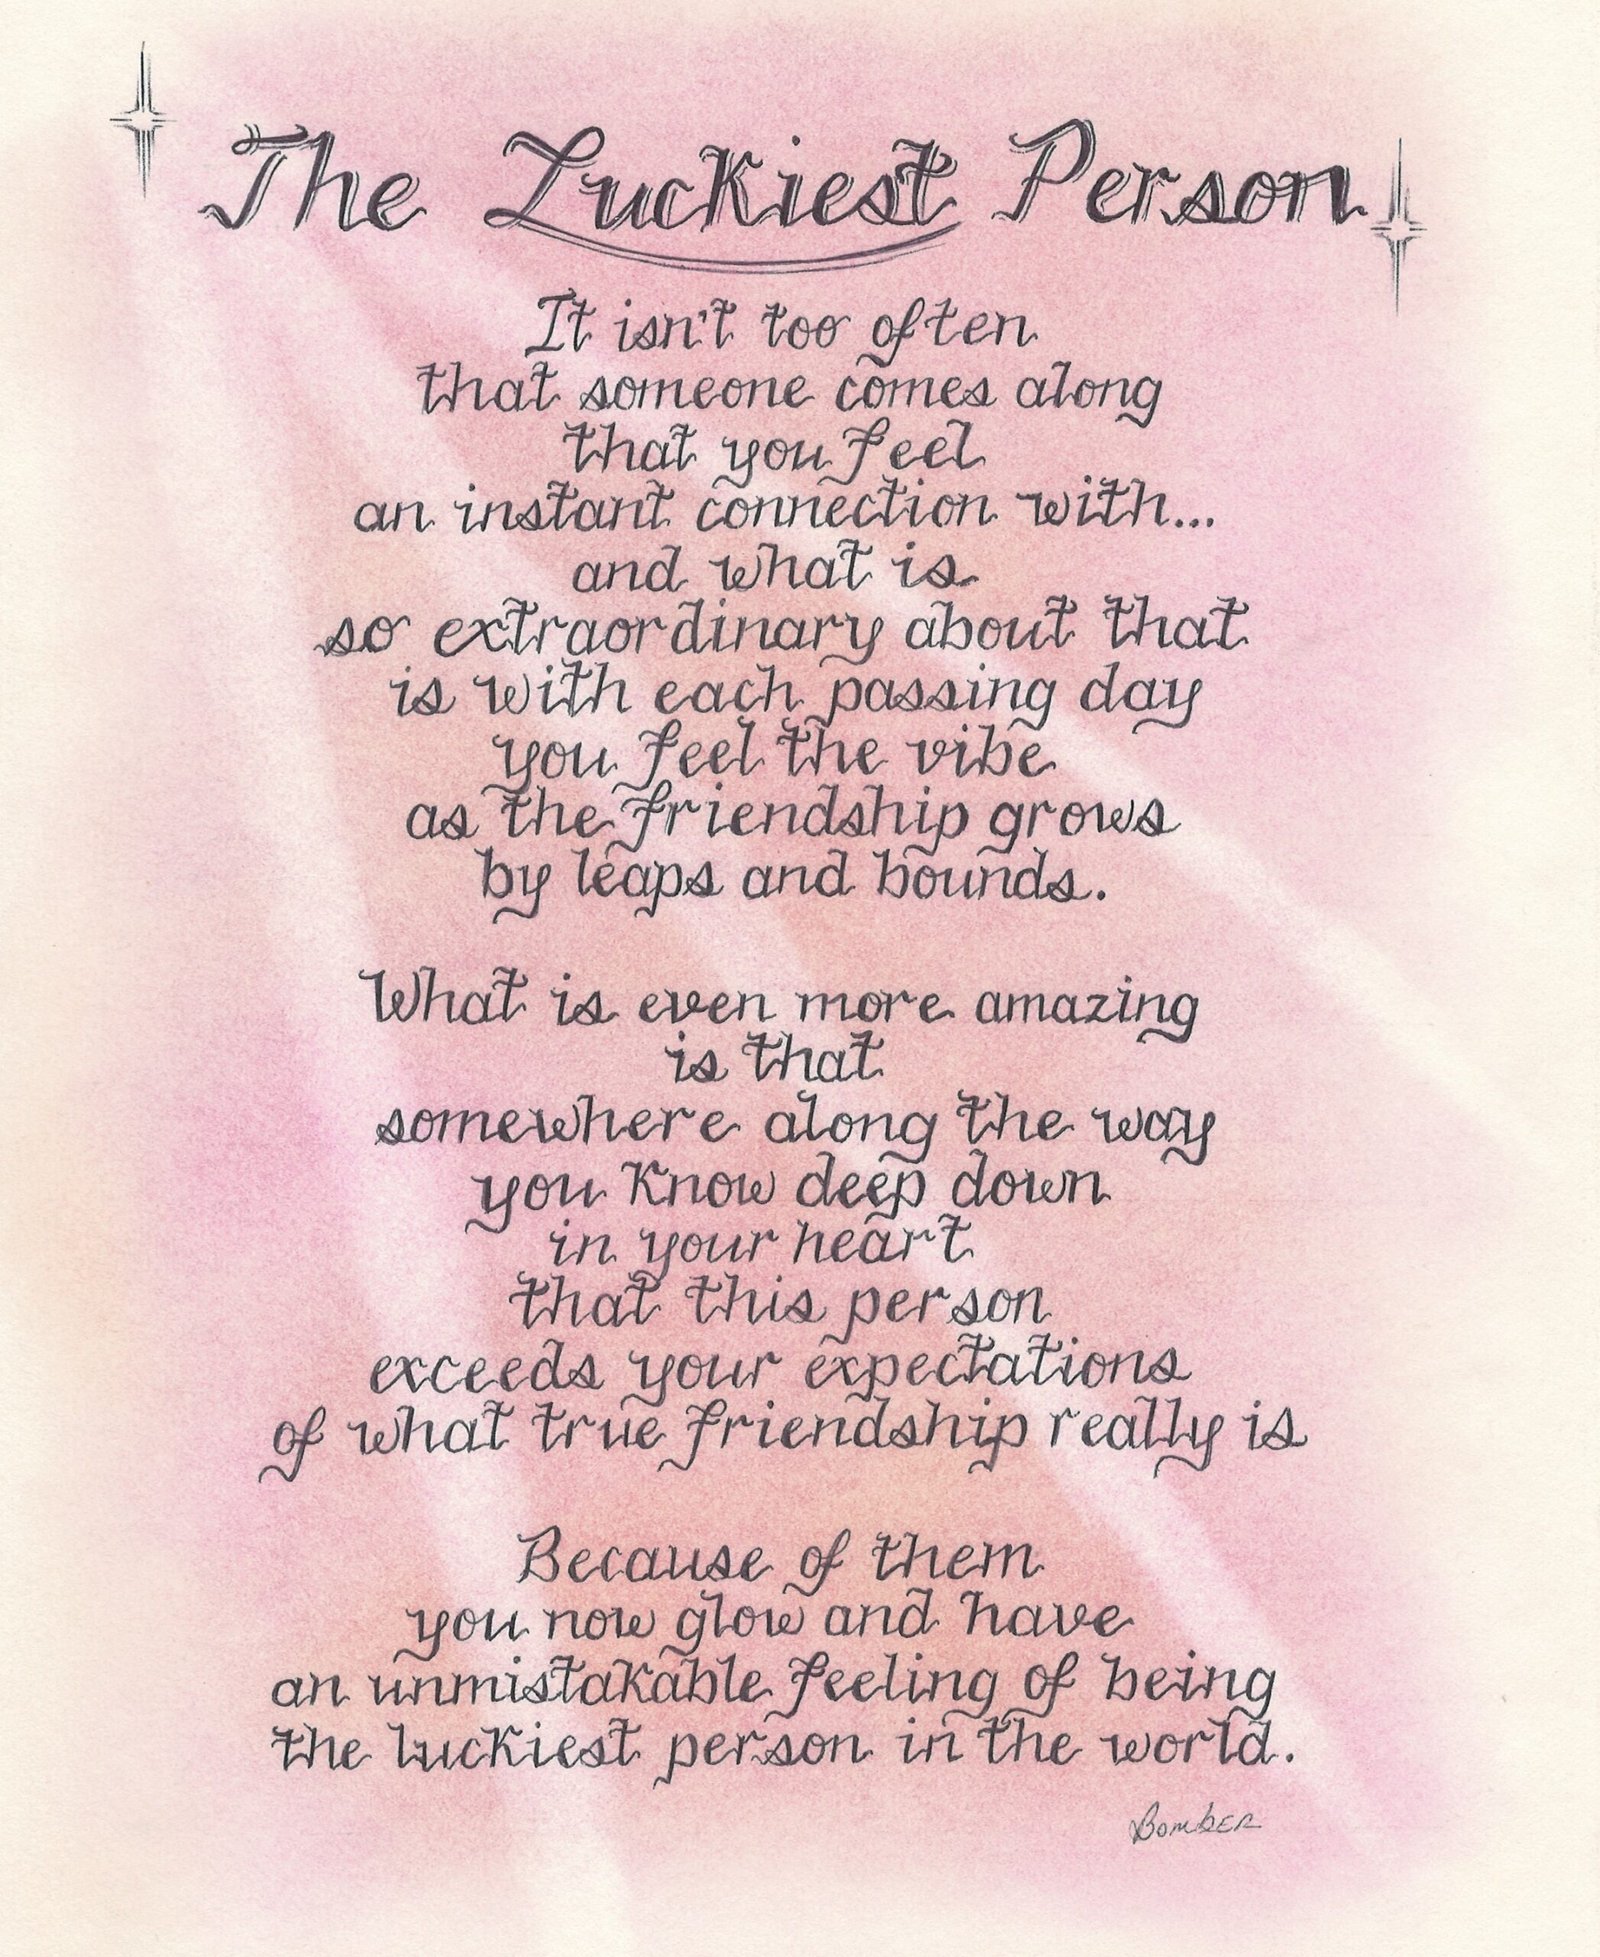 The Luckiest Person
It isn't too often
that someone comes along
that you feel
an instant connection with...
and what is
so extraordinary about that
is with each passing day
you feel the vibe
as the friendship grows
by leaps and bounds.
What is even more amazing
is that
somewhere along the way
you know deep down
in your heart
that this person
exceeds your expectations
of what true friendship really is
Because of them
you now glow and have
an unmistakable feeling of being
the luckiest person in the world.
Bomber